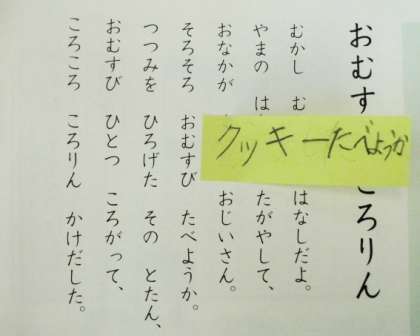 おむす ころりん
むかし む はなしだよ。
やまの は たがやして、
おなかが おじいさん。
そろそろ おむすび たべようか。
つつみを ひろげた その とたん、
おむすび ひとつ ころがって、
ころころ ころりん かけだした。
クッキーたべようか